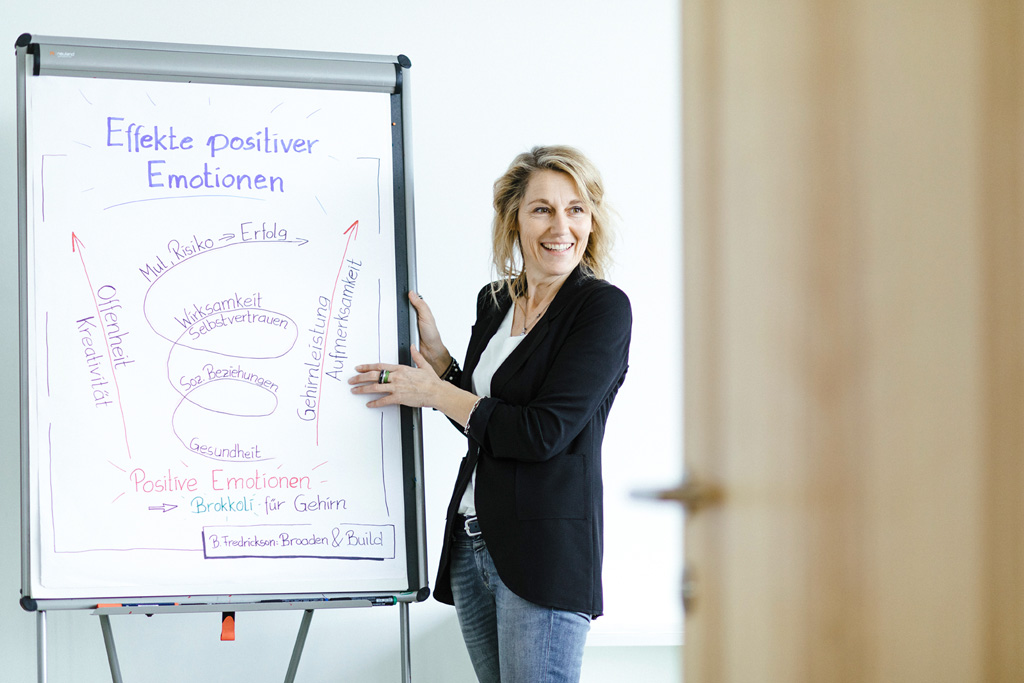 Effekte positiver
Emotionen
Mut, Risiko → Erfolg
Wirksamkeit
Selbstvertrauen
Soz. Beziehungen
Gesundheit
Offenheit
Kreativität
Gehirnleistung
Aufmerksamkeit
Positive Emotionen
⇒ Brokkoli für Gehirn
B. Fredrickson: Broaden & Build